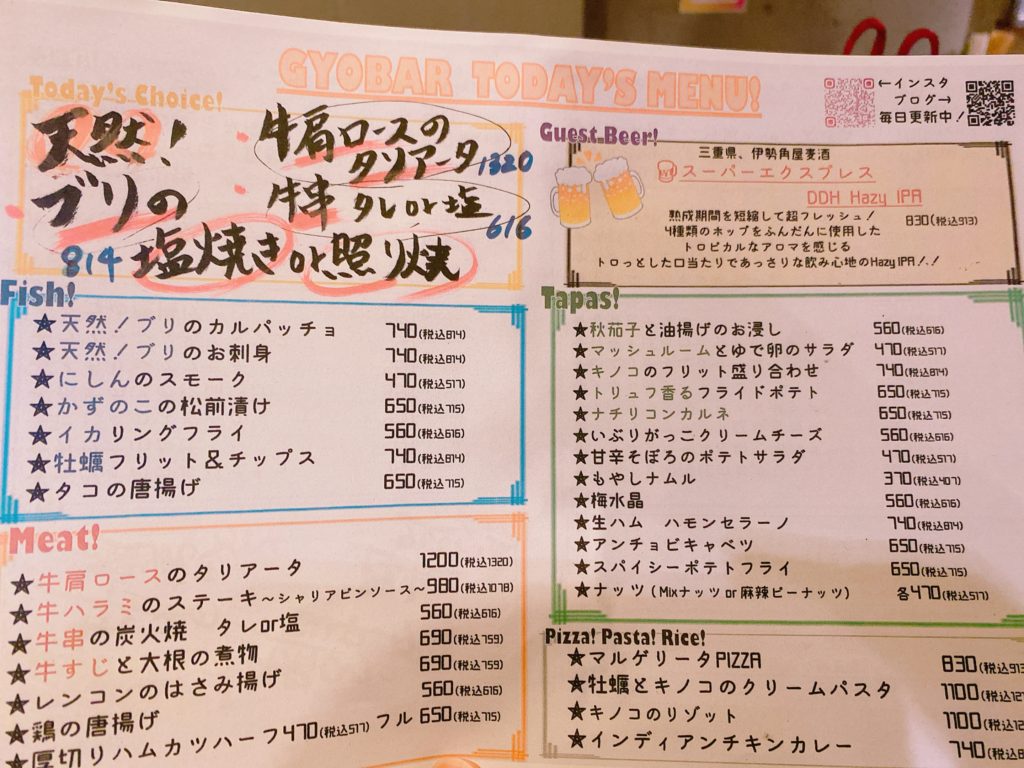 GYOBAR TODAY'S MENU!
←インスタ
ブログ→
毎日更新中!
Today's Choice!
天然!
ブリの
814 塩焼き or 照り焼
牛肩ロースの
タリアータ 1320
牛串 タレor塩
616
Guest Beer!
三重県、伊勢角屋麦酒
スーパーエクスプレス
DDH Hazy IPA
熟成期間を短縮して超フレッシュ! 830(税込913)
4種類のホップをふんだんに使用した
トロピカルなアロマを感じる
トロっとした口当たりであっさりな飲み心地のHazy IPA!!
Fish!
★天然!ブリのカルパッチョ 740(税込814)
★天然!ブリのお刺身 740(税込814)
★にしんのスモーク 470(税込517)
★かずのこの松前漬け 650(税込715)
★イカリングフライ 560(税込616)
★牡蠣フリット&チップス 740(税込814)
★タコの唐揚げ 650(税込715)
Meat!
★牛肩ロースのタリアータ 1200(税込1320)
★牛ハラミのステーキ~シャリアピンソース~ 980(税込1078)
★牛串の炭火焼 タレor塩 560(税込616)
★牛すじと大根の煮物 690(税込759)
★レンコンのはさみ揚げ 690(税込759)
★鶏の唐揚げ 560(税込616)
★厚切りハムカツハーフ470(税込517) フル 650(税込715)
Tapas!
★秋茄子と油揚げのお浸し 560(税込616)
★マッシュルームとゆで卵のサラダ 470(税込517)
★キノコのフリット盛り合わせ 740(税込814)
★トリュフ香るフライドポテト 650(税込715)
★ナチリコンカルネ 650(税込715)
★いぶりがっこクリームチーズ 560(税込616)
★甘辛そぼろのポテトサラダ 470(税込517)
★もやしナムル 370(税込407)
★梅水晶 560(税込616)
★生ハム ハモンセラーノ 740(税込814)
★アンチョビキャベツ 650(税込715)
★スパイシーポテトフライ 650(税込715)
★ナッツ(Mixナッツ or 麻辣ピーナッツ) 各470(税込517)
Pizza! Pasta! Rice!
★マルゲリータPIZZA 830(税込913
★牡蠣とキノコのクリームパスタ 1100(税込12
★キノコのリゾット 1100(税込12
★インディアンチキンカレー 740(税込8